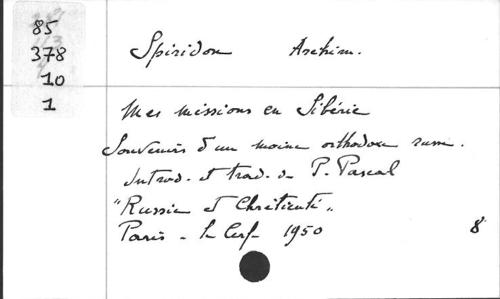 85
378
10
1
Spiridon Archim.
Mes missions en Sibérie
Souvenirs d'un moine orthodoxe russe.
Introd. et trad. de P. Pascal
"Russie et Chrétienté"
Paris - le Cerf - 1950 8